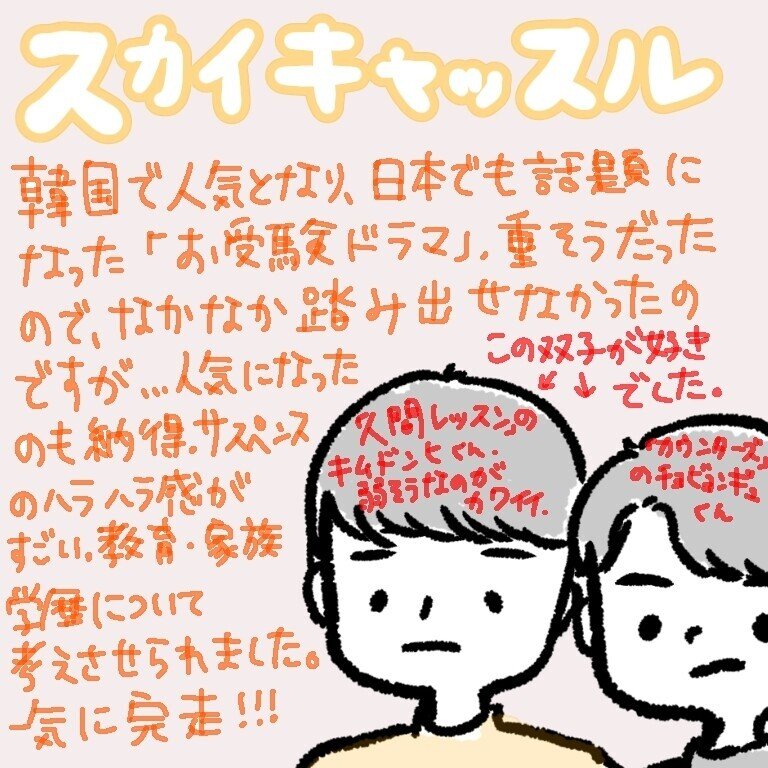 スカイキャッスル
韓国で人気となり、日本でも話題に
なった「お受験ドラマ」、重そうだった
ので、なかなか踏み出せなかったの
ですが…人気になった
のも納得。サスペンス
のハラハラ感が
すごい。教育・家族
学歴について
考えさせられました。
一気に完走!!!
この双子が好き
↙ ↓ でした。
人間レッスン」の
キムドンヒくん。
弱そうなのが
カワイイ。
「カウンターズ」
のチョビョンギュ
くん